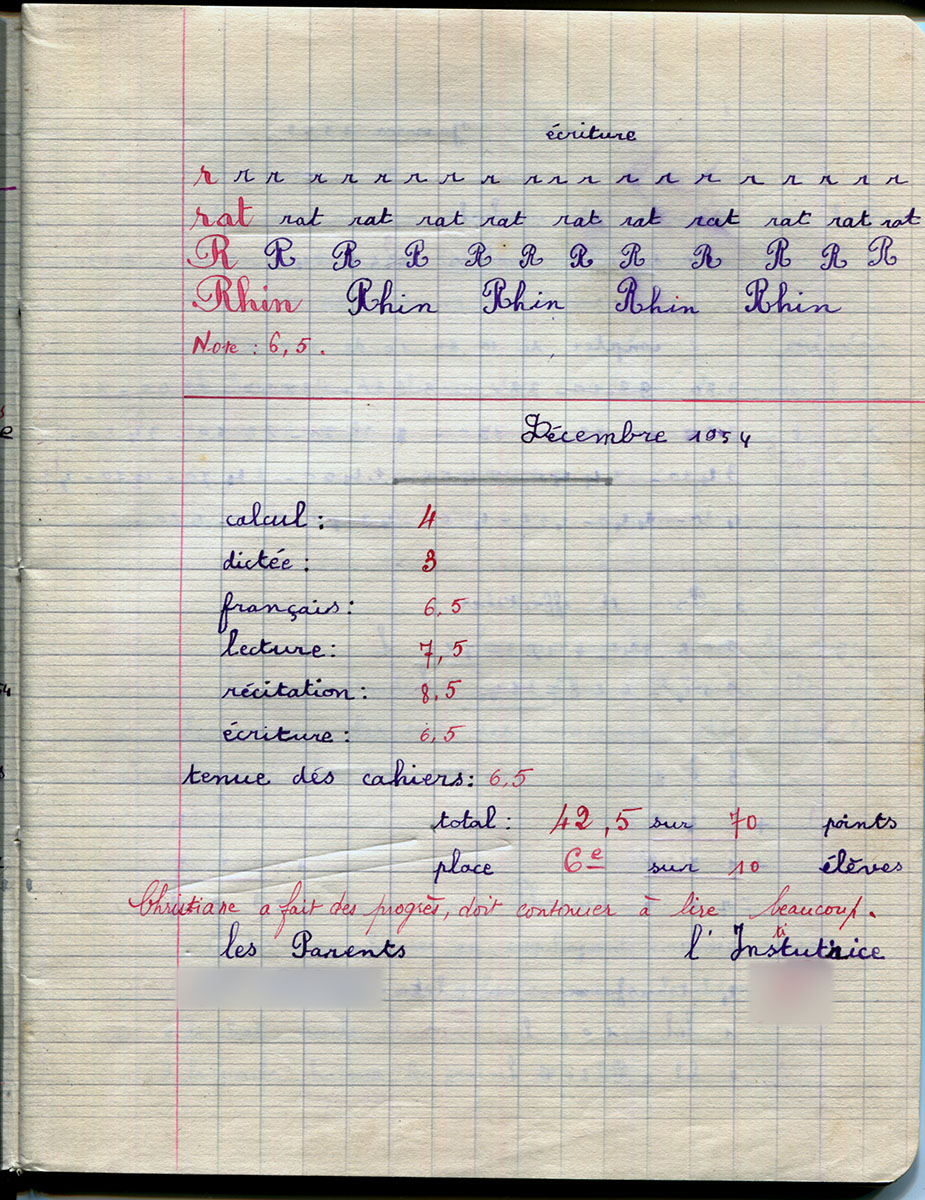 écriture
r r r r r r r r r r r r r r r r r r r r
rat rat rat rat rat rat rat rat rat rat rat
R R R R R R R R R R R R
Rhin Rhin Rhin Rhin Rhin
Note : 6,5.
Décembre 1954
calcul : 4
dictée : 3
français : 6,5
lecture : 7,5
récitation : 8,5
écriture : 6,5
tenue dés cahiers : 6,5
total : 42,5 sur 70 points
place 6e sur 10 élèves
Christiane a fait des progrès, doit continuer à lire beaucoup.
les Parents l'Institutrice